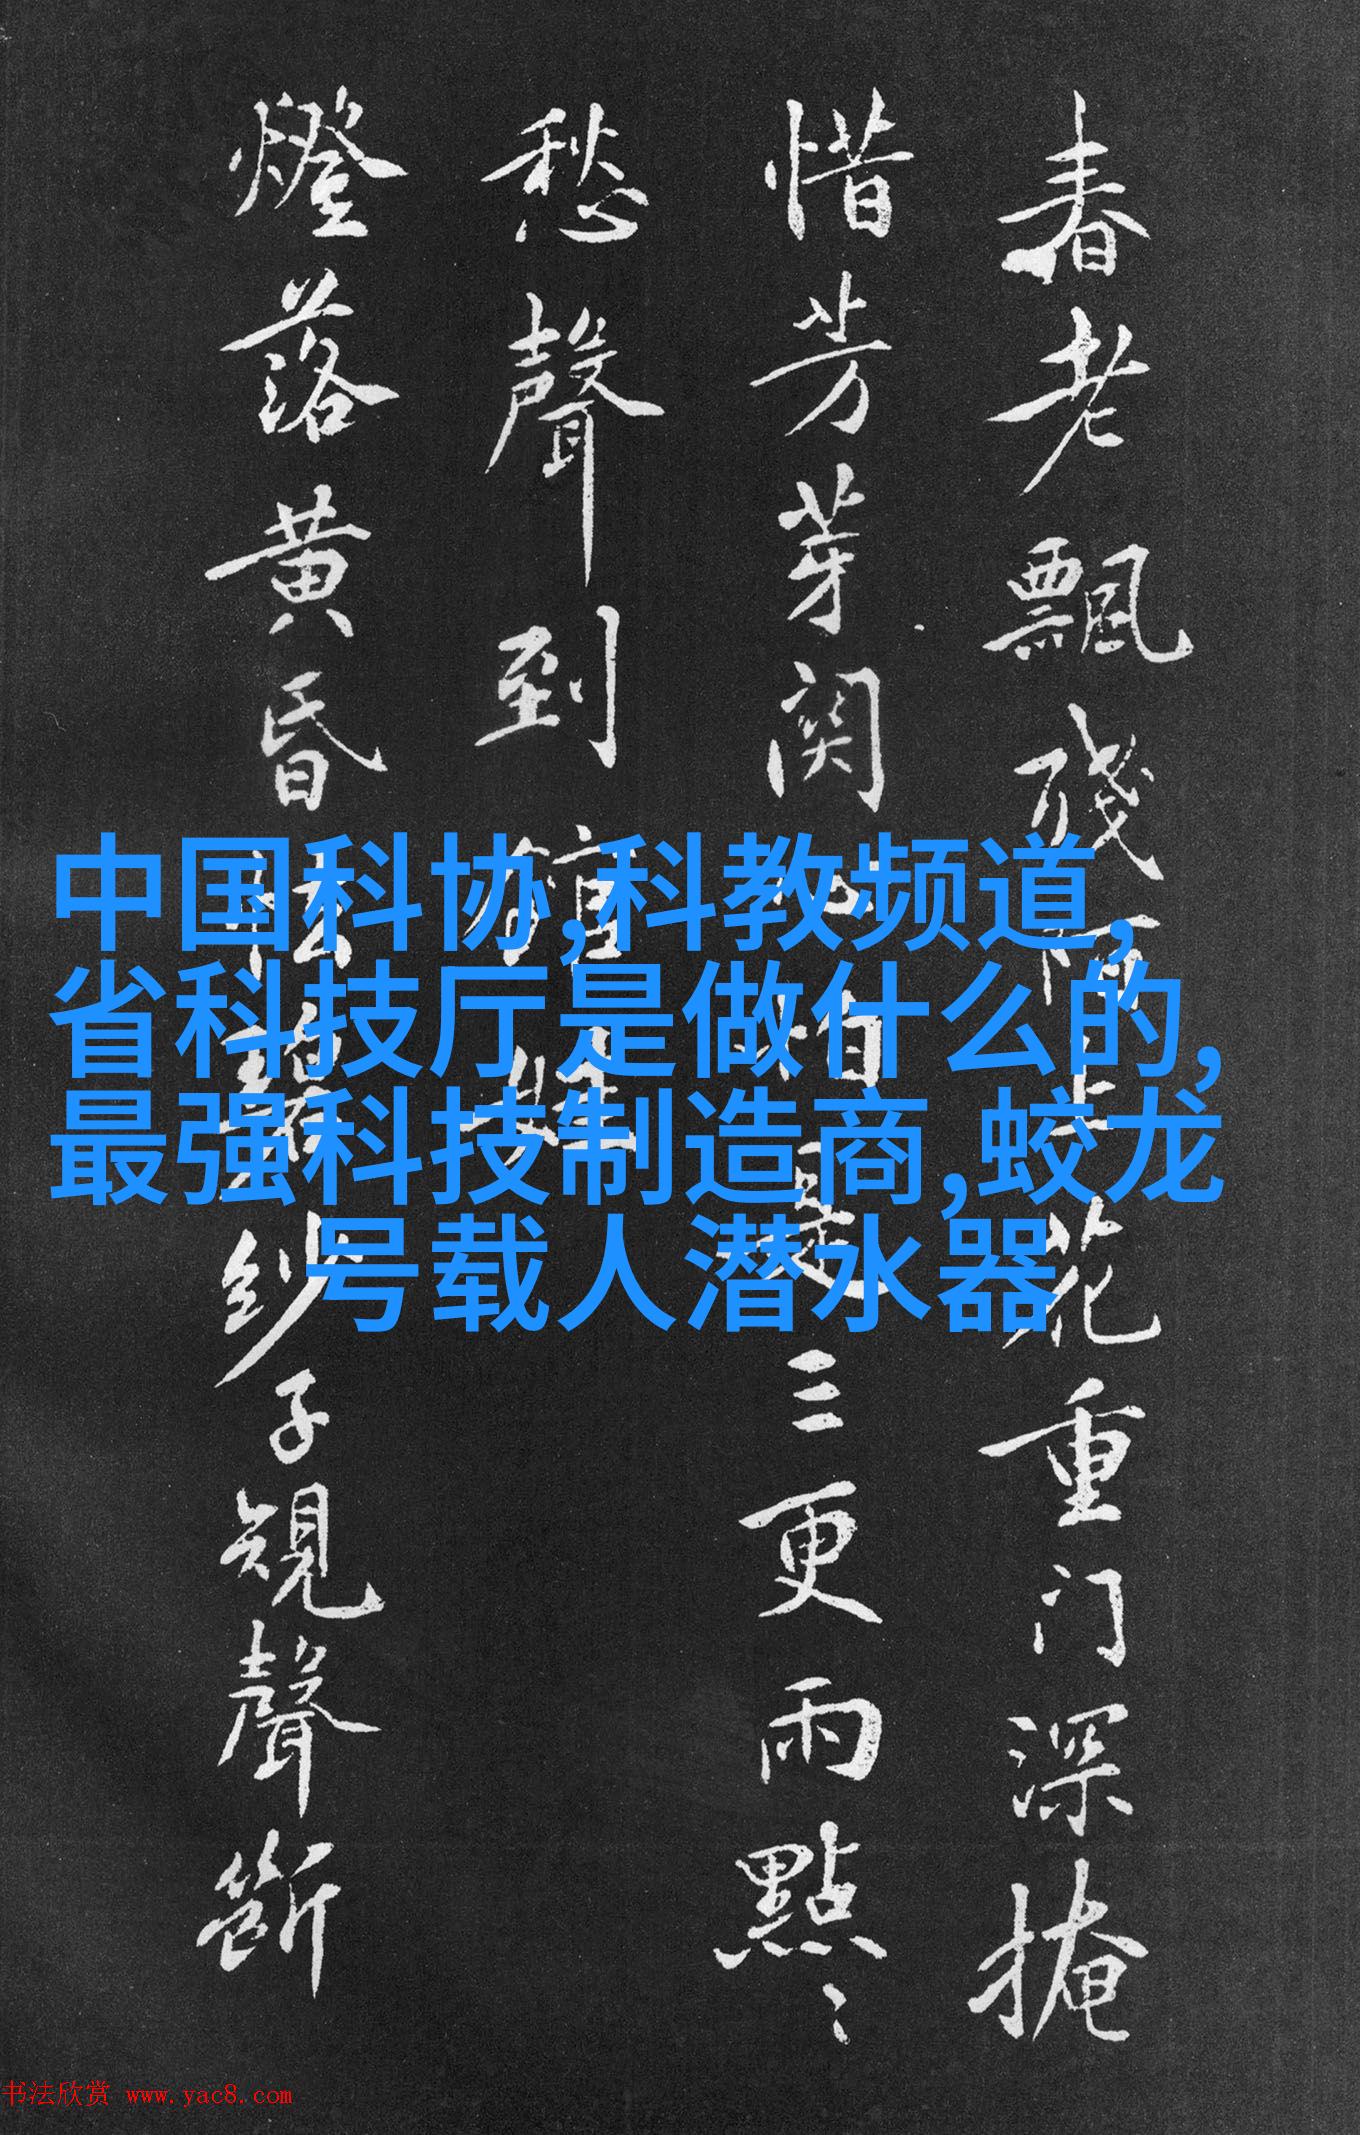 春老飄殘上花重门深掩
惜芳芽関心怕是三更雨點〻
愁聲到館娃
燈落黄昏紗子規聲斷
中国科协,科教频道,
省科技厅是做什么的,
最强科技制造商,蛟龙
号载人潜水器
书法欣赏 www.yac8.com